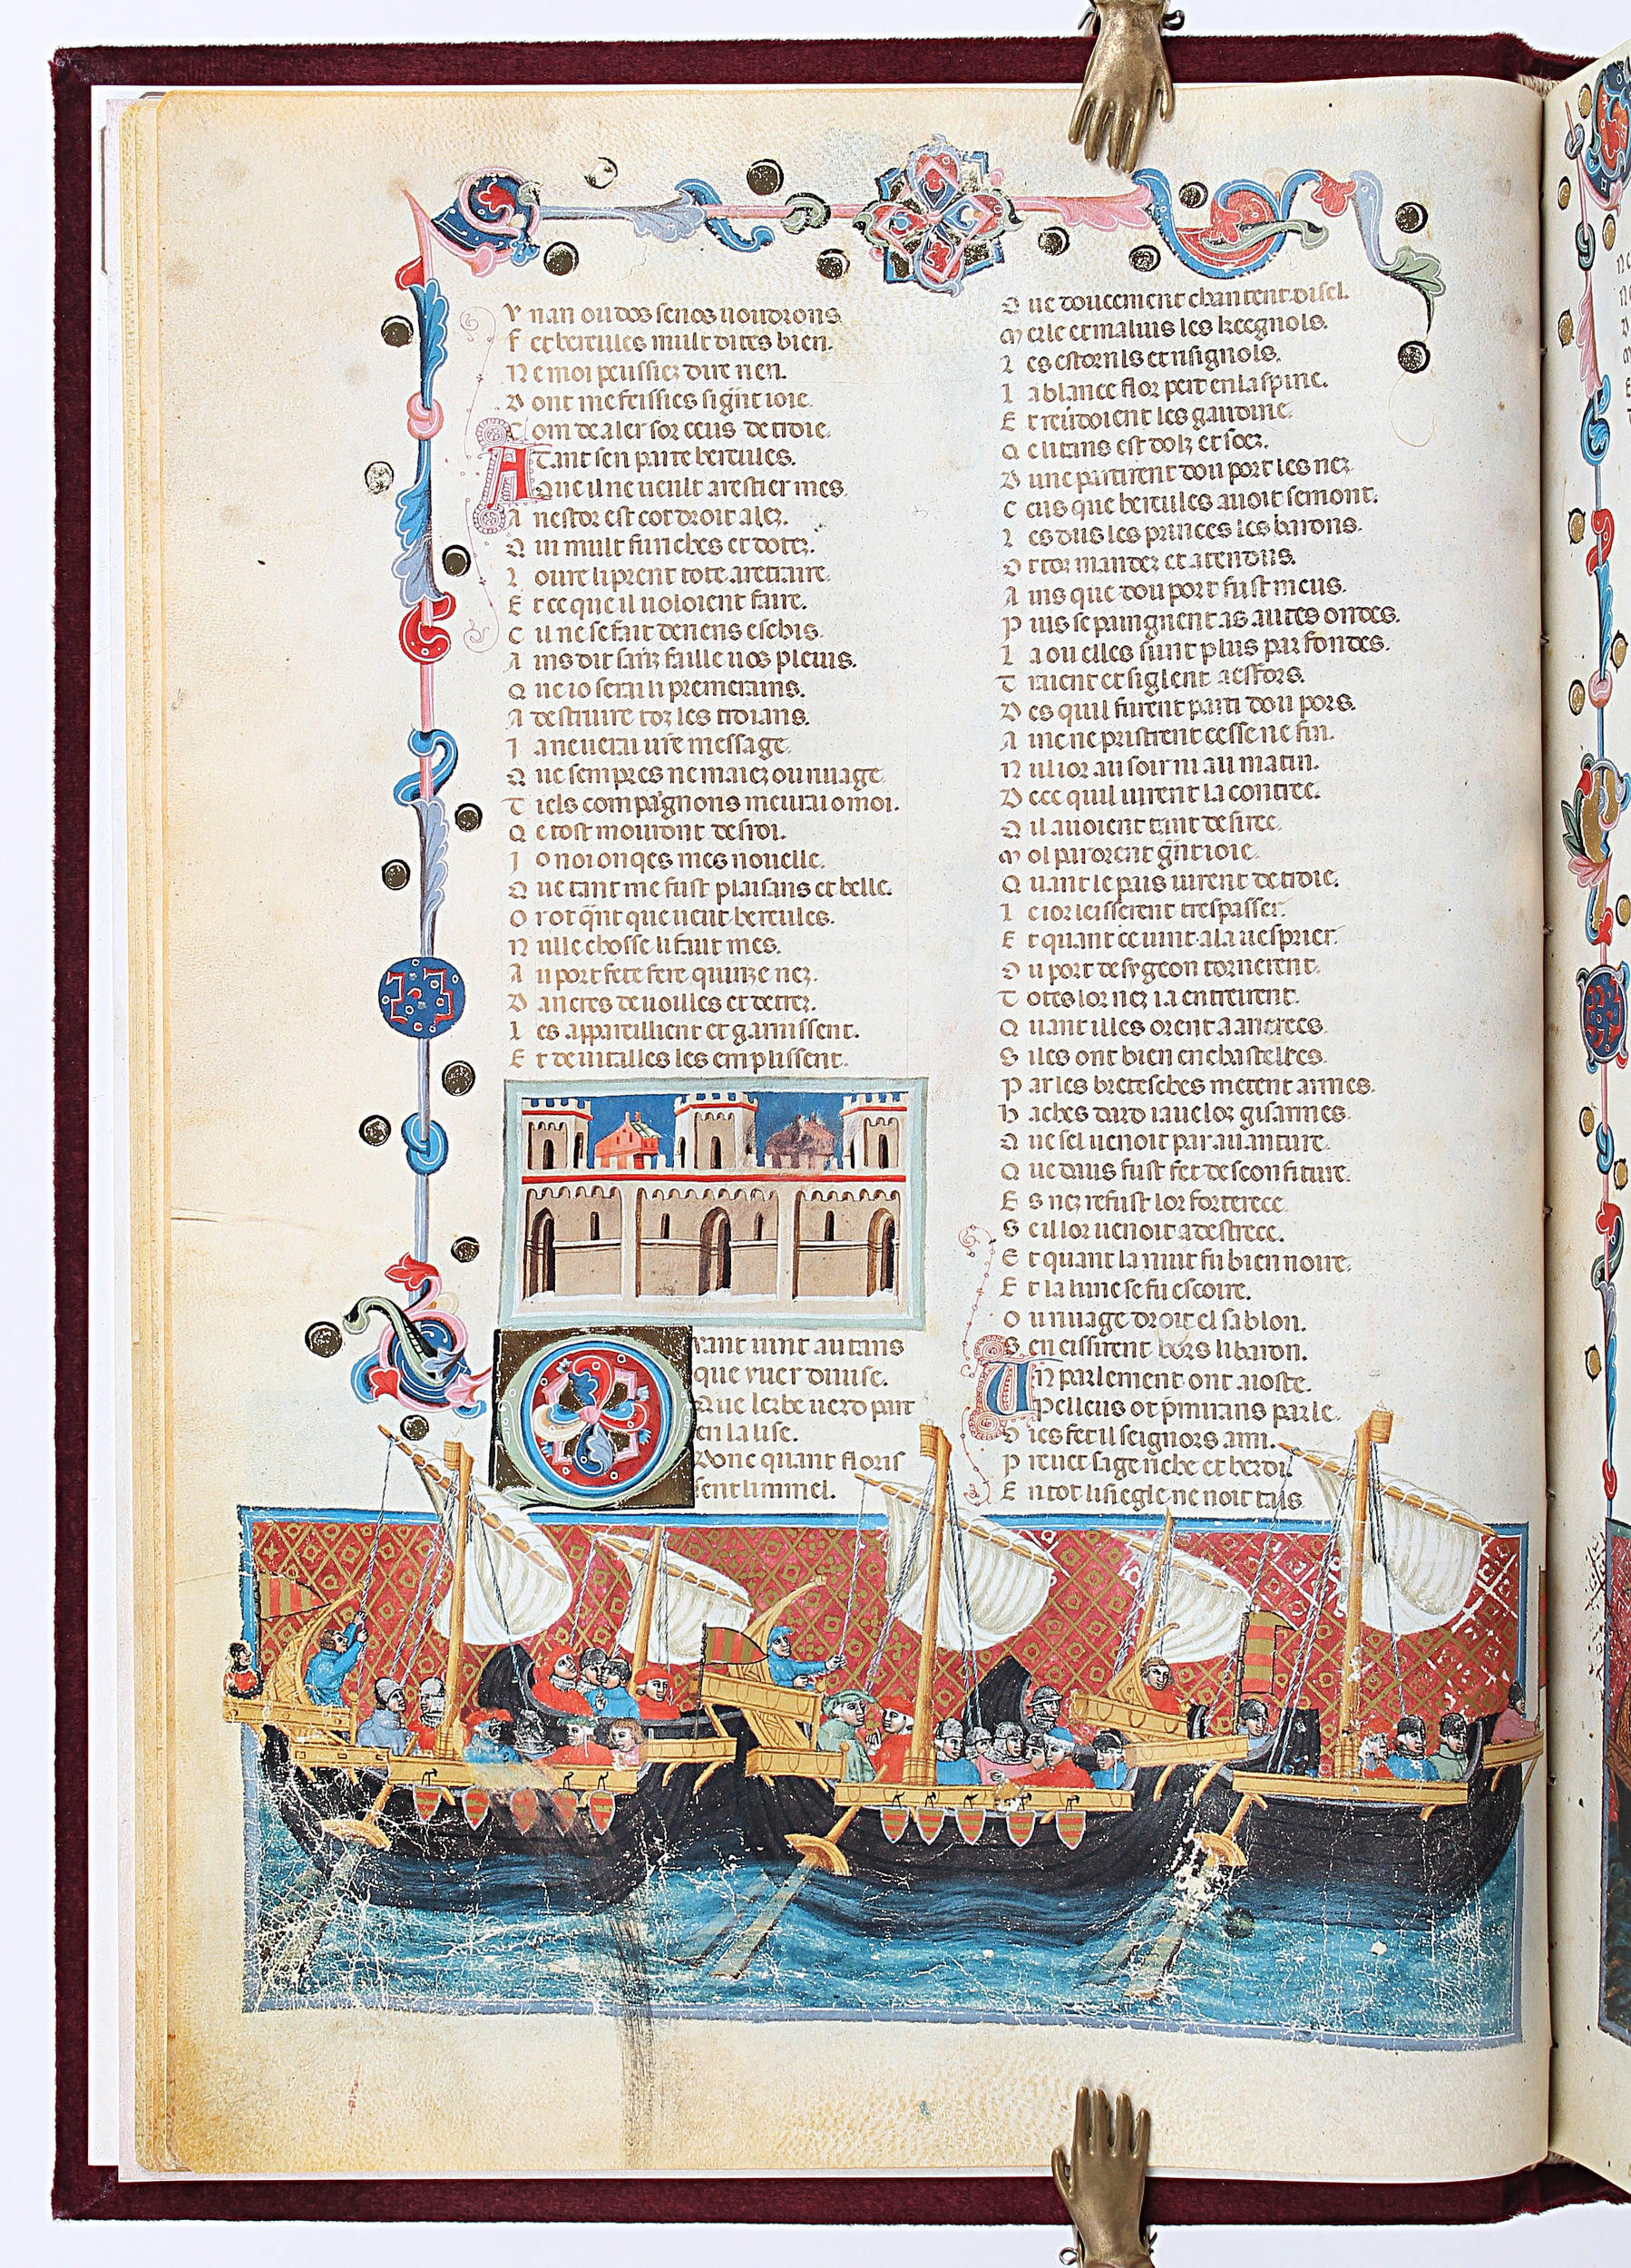 V nan ou dos se nos uoudrons.
F et hercules mult dites bien.
N e moi peussiez dire rien.
D ont me feissies si gñt ioie.
C om de aler sor ceus de troie.
A Tant sen parte hercules.
Que il ne ueult arestier mes.
A nestor est tot droit alez.
Q ui mult fu riches et dotez.
L oure li prent tote a retraire.
E t ce que il uoloient faire.
C il ne se fait de riens eschis.
A ins dit sanz faille uos pleuis.
Q ue io serai li premerains.
A destruire toz les troians.
I a ne uerai ure message.
Q ue sempres ne maiez ou riuage.
T iels compagnons menrai o moi.
Q e tost mouront desroi.
I o noi onqes mes nouelle.
Q ue tant me fust plaisans et belle.
O r ot qñt que ueut hercules.
N ulle chosse li faut mes.
A u port fete fere quinze nez.
D ancres de uoilles et de trez.
L es appareillient et garnissent.
E t de uitailles les emplissent.
Vant uint au tans
que yuer diuise.
Que lerbe uerd part
en la lise.
Donc quant floris
sent li rimel.
Q ue doucement chantent oisel.
M erle et maluis les kecgnols.
L es estornls et rusignols.
L a blance flor pert en laspine.
E t reuerdoient les gaudine.
Q e li tans est dolz et soez.
D une partirent dou port les nez.
C eus que hercules auoit semont.
L es dus les princes les barons.
O t toz mandez et atendus.
A ins que dou port fust meus.
P uis se paingnent as autes ondes.
L a ou elles sunt plus parfondes.
T raient et siglent a esfors.
D es quil furent parti dou pors.
A inc ne pristrent cesse ne fin.
N ul ior au soir ni au matin.
D ece quil uirent la contree.
Q il auoient tant desiree.
M ol par orent gñt ioie.
Q uant le pais uirent de troie.
L e ior leisserent trespasser.
E t quant ce uint a la uesprier.
O u port de sygeon tornerent.
T otes lor nez i a entreirent.
Q uant illes orent aancrees.
S iles ont bien enchastelees.
P ar les bretesches metent armes.
H aches darz iaueloz gisarmes.
Q ue sel uenoit par auanture.
Q ue daus fust fet desconfiture.
E s nez refust lor forterece.
S eil lor uenoit a destrece.
E t quant la nuit fu bien noire.
E t la lune se fu escoire.
O u riuage droit el sablon.
S en eissirent hors li baron.
U n parlement ont aioste.
pelleus ot p̃mirans parle.
D ies fet il seignors ami.
P reuet sage riche et herdi.
E n tot li siegle ne noit tals.